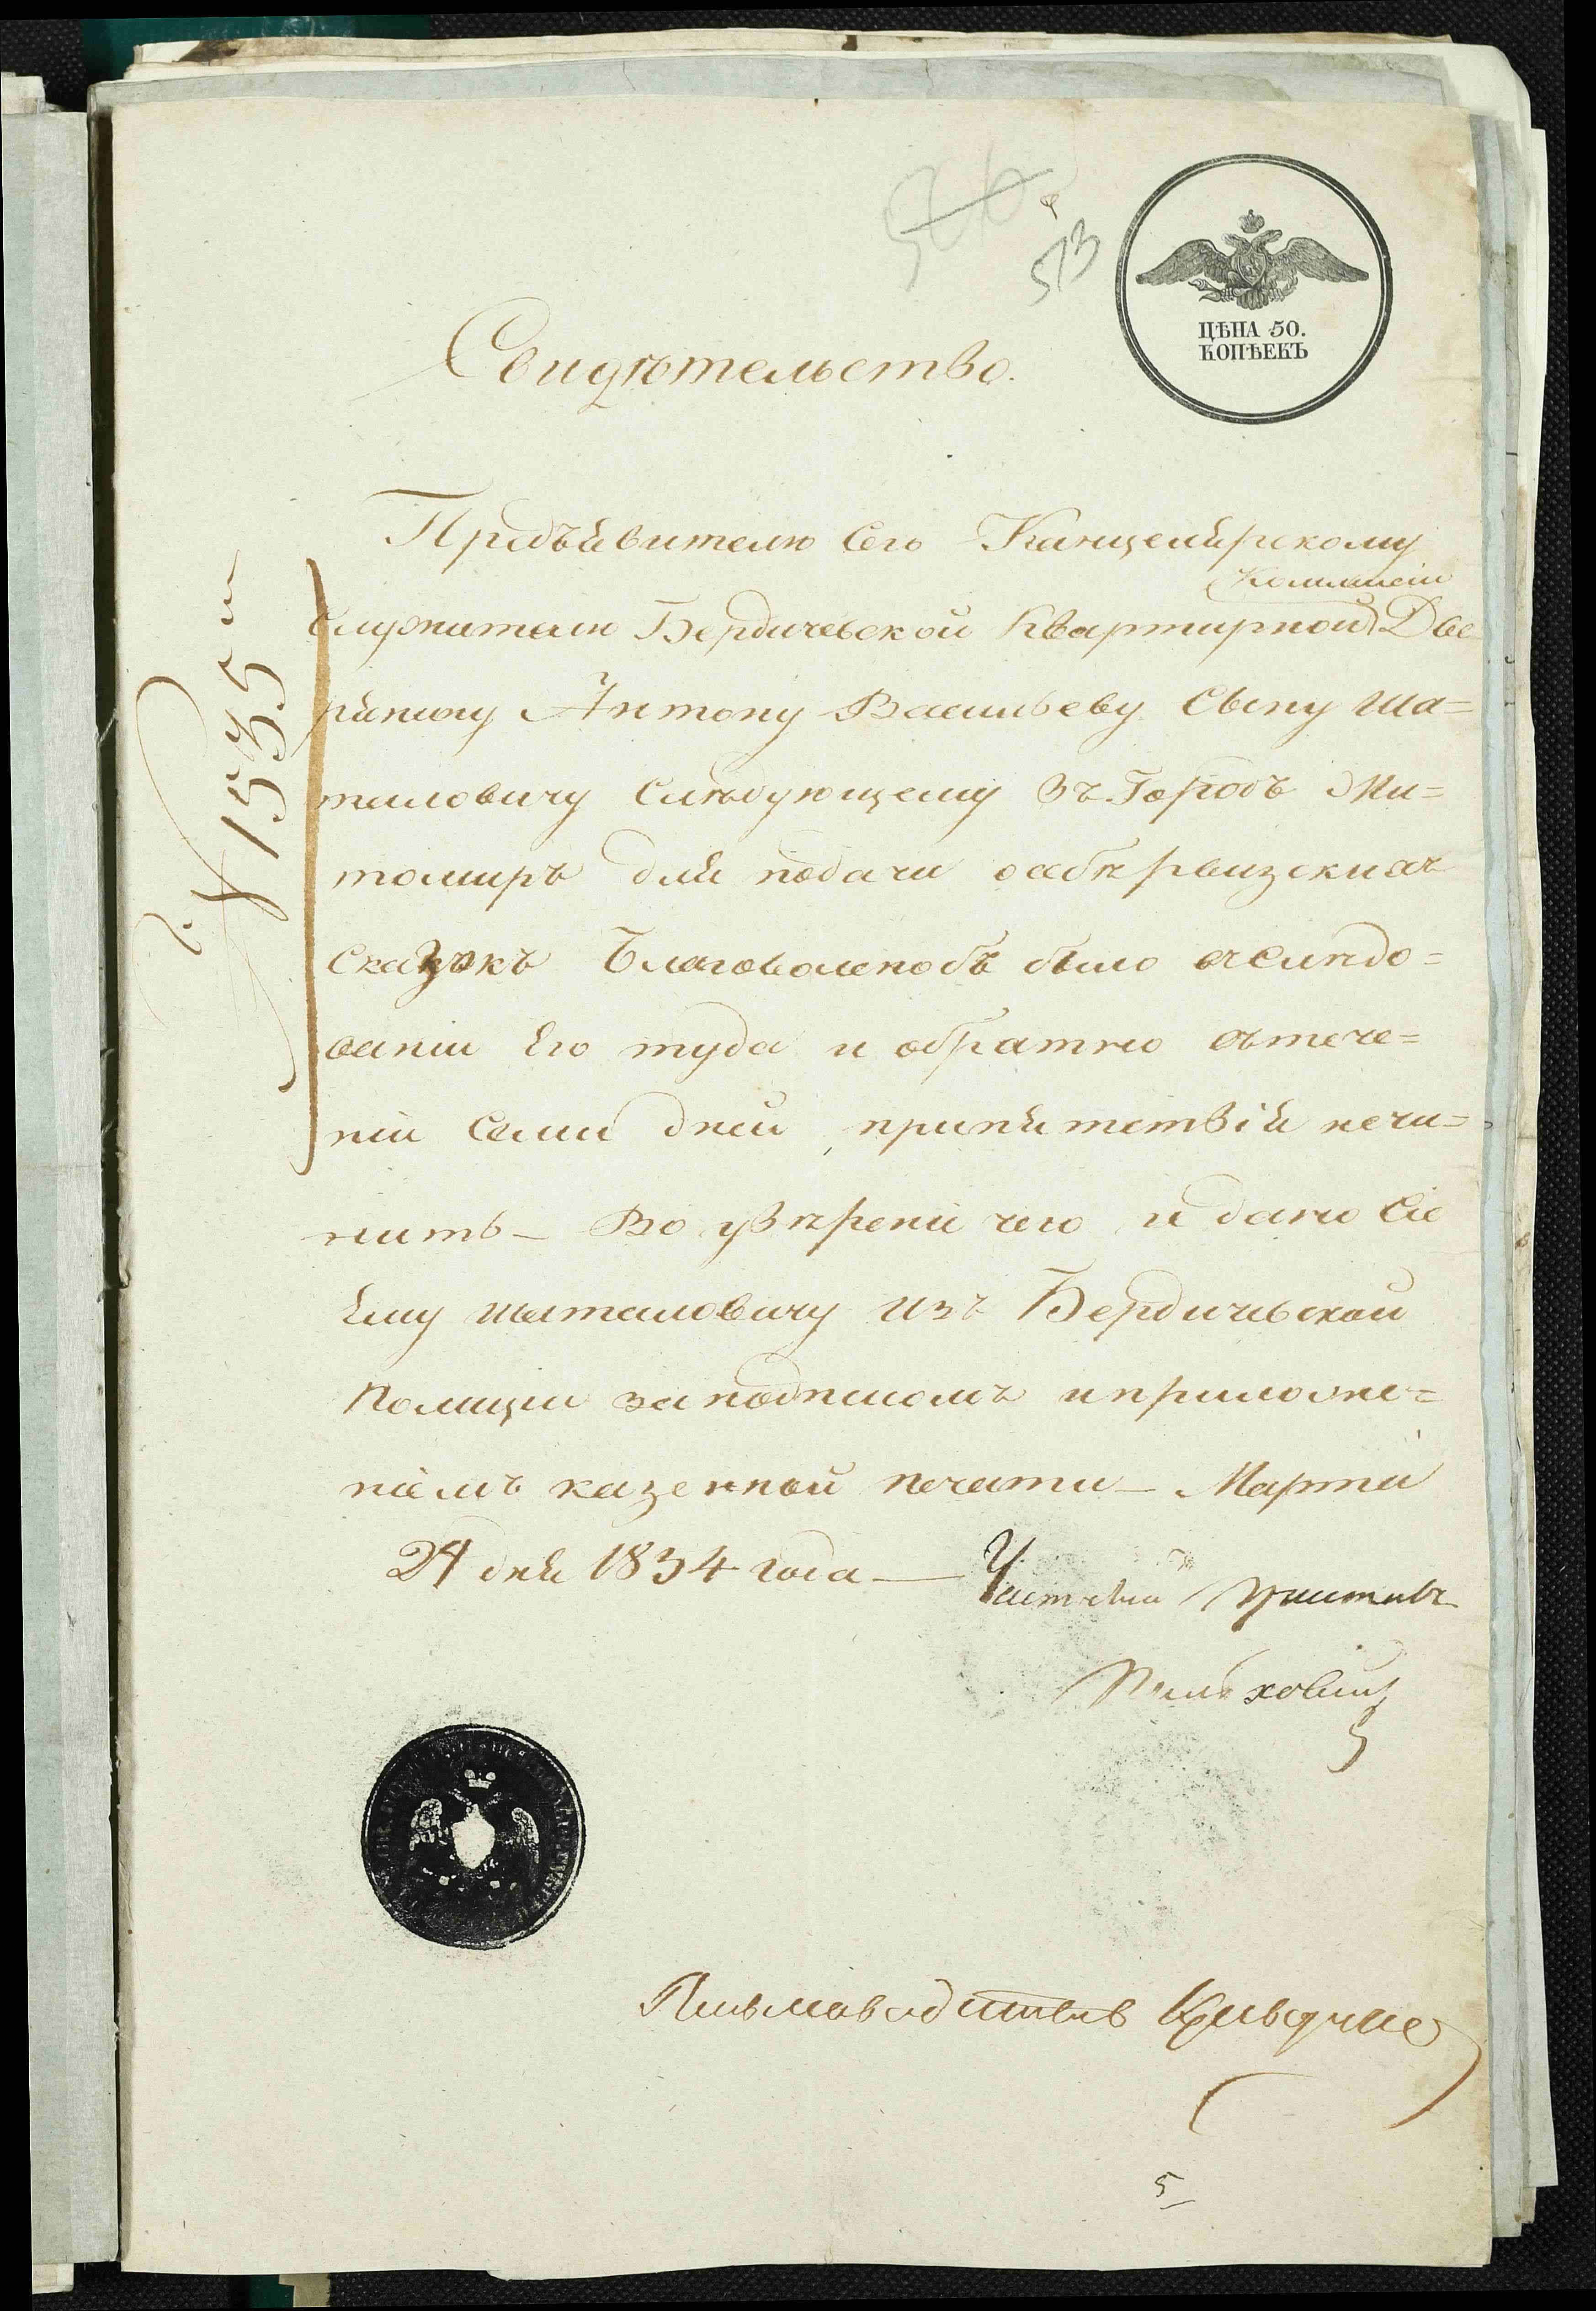 573
ЦѢНА 50.
КОПѢЕКЪ
Свидѣтельство.
Предъявителю Сего Канцелярскому
Коммисіи
Служителю Бердичевской Квартирной Дво
рянину Антону Васильеву Сыну Ша=
тиловичу Слѣдующему Въ Городъ Жи=
томиръ для подачи ревизскихъ
Сказокъ Благоволенобъ было
ваніи Его туда и обратно втече=
ніи Семи дней, припятствій нечи=
нить — Во увѣрени чего и дано Сіе
Ему Шатиловичу Изъ Бердичевской
Полиции заподписомъ и приложе=
ніемъ казенной печати — Марта
24 дня 1834 года — Частный Приставъ
№ 1535
Письмоводитель
5